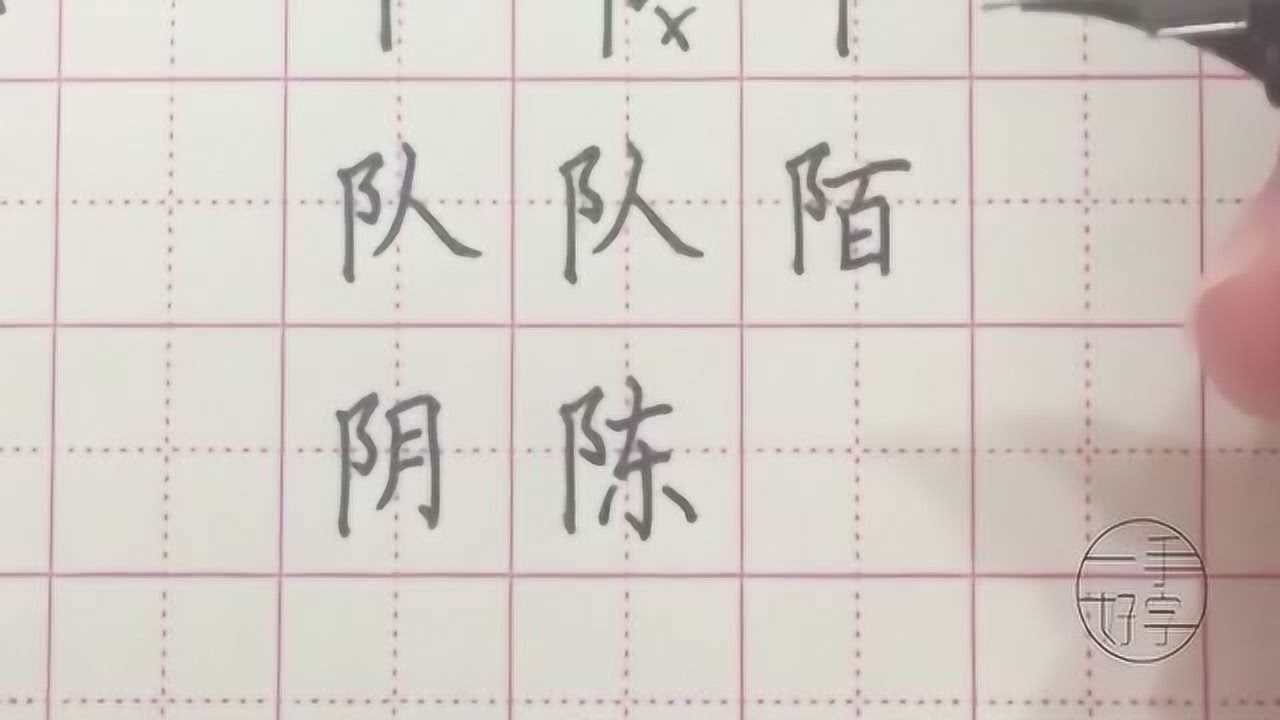 队 队 陌
阴 陈
一手
好字